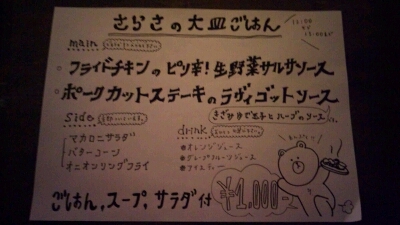 さらさの大皿ごはん
main
フライドチキンのピリ辛!生野菜サルサソース
ポークカットステーキのラヴィゴットソース
きざみゆで玉子とハーブのソース
side
マカロニサラダ
バターコーン
オニオンリングフライ
drink
オレンジジュース
グレープフルーツジュース
アイスティー
ごはん,スープ,サラダ付
¥1,000-